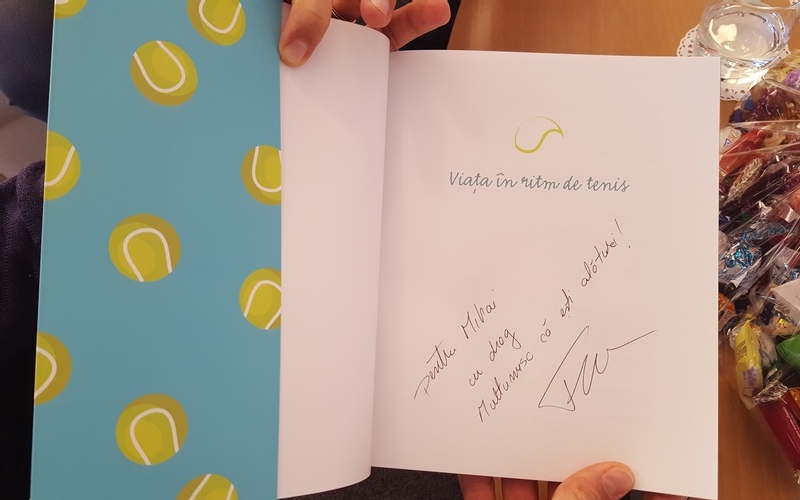 Viața în ritm de tenis
pentru Mihai
cu drag
Mulțumesc că ești alături!